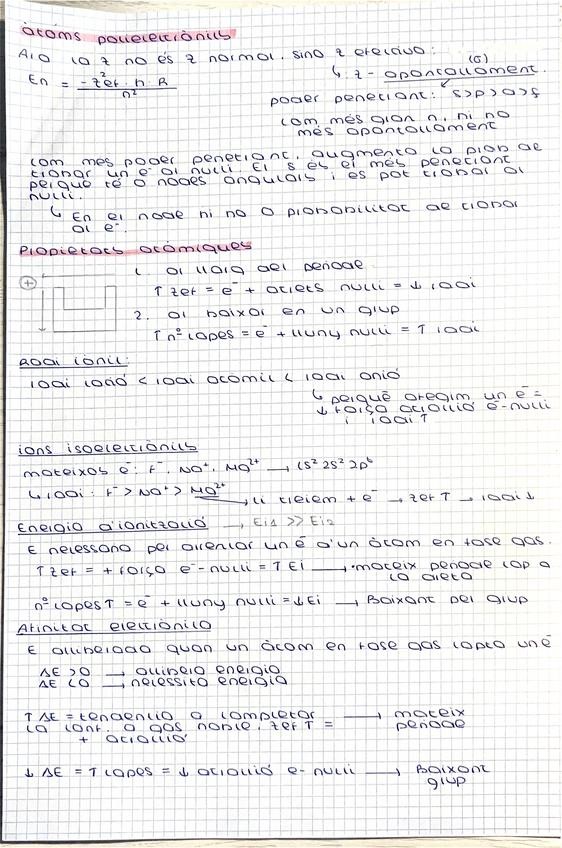 Àtoms polielectrònics
Ara la z no és z normal, sino z efectiva:
↳ z - apantallament. (σ)
En = -z²ef. h. R / n²
poder penetrant: s>p>d>f
com més gran n, hi ha
més apantallament
com més poder penetrant, augmenta la prob de
trobar un e⁻ al nucli. El s és el més penetrant
perquè té 0 nodes angulars i es pot trobar al
nucli.
↳ En el node hi ha 0 probabilitat de trobar
al e⁻.
Propietats atòmiques
1. al llarg del període
↑ zef = e⁻ + atrets nucli = ↓ radi
2. al baixar en un grup
↑ nº capes = e⁻ + lluny nucli = ↑ radi
Radi iònic:
radi catió < radi atòmic < radi anió
↳ perquè afegim un e⁻ =
↓ força atracció e⁻-nucli
i radi ↑
ions isoelectrònics
mateixos e⁻: F⁻, Na⁺, Mg²⁺ → 1s² 2s² 2p⁶
↳ radi: F⁻ > Na⁺ > Mg²⁺
→ li traiem + e⁻ → zef ↑ → radi ↓
Energia d'ionització → Ei1 >> Ei2
E necessària per arrencar un e⁻ d'un àtom en fase gas.
↑ zef = + força e⁻-nucli = ↑ Ei → mateix període cap a
la dreta
nº capes ↑ = e⁻ + lluny nucli = ↓ Ei → Baixant pel grup
Afinitat electrònica
E alliberada quan un àtom en fase gas capta un e⁻
ΔE > 0 → allibera energia
ΔE < 0 → necessita energia
↑ ΔE = tendència a completar → mateix
la conf. a gas noble, zef ↑ = període
+ atracció
↓ ΔE = ↑ capes = ↓ atracció e⁻-nucli → Baixant
grup